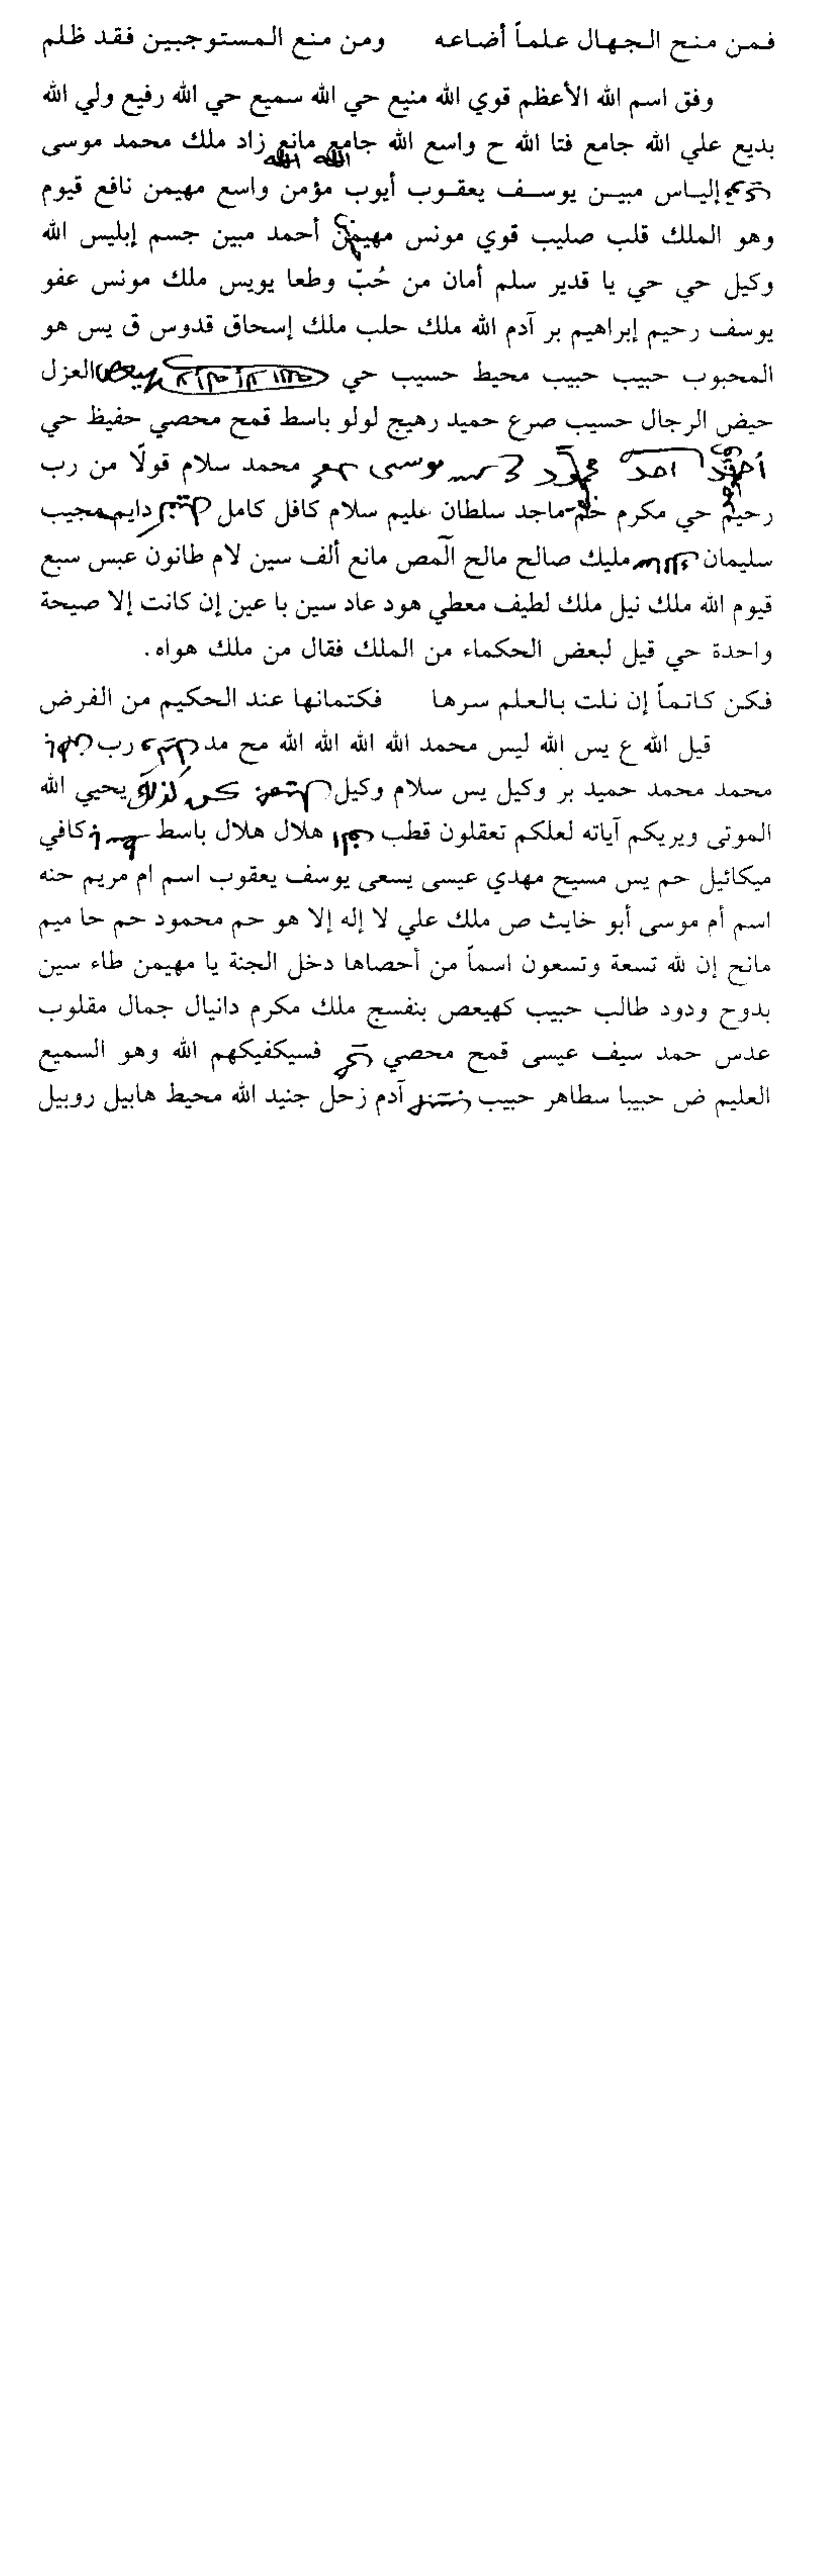 فمن منح الجهال علماً أضاعه ومن منع المستوجبين فقد ظلم
وفق اسم الله الأعظم قوي الله منيع حي الله سميع حي الله رفيع ولي الله
بديع علي الله جامع فتا الله ح واسع الله جامع مانع زاد ملك محمد موسى
الله الله
إلياس مبين يوسف يعقوب أيوب مؤمن واسع مهيمن نافع قيوم
وهو الملك قلب صليب قوي مونس مهيمن أحمد مبين جسم إبليس الله
وكيل حي حي يا قدير سلم أمان من حُبّ وطعا يويس ملك مونس عفو
يوسف رحيم إبراهيم بر آدم الله ملك حلب ملك إسحاق قدوس ق يس هو
المحبوب حبيب حبيب محيط حسيب حي العزل
حيض الرجال حسيب صرع حميد رهيج لولو باسط قمح محصي حفيظ حي
احمد محمود موسى محمد سلام قولًا من رب
رحيم حي مكرم ماجد سلطان عليم سلام كافل كامل دايم مجيب
سليمان مليك صالح مالح الٓمص مانع ألف سين لام طانون عبس سبع
قيوم الله ملك نيل ملك لطيف معطي هود عاد سين با عين إن كانت إلا صيحة
واحدة حي قيل لبعض الحكماء من الملك فقال من ملك هواه.
فكن كاتماً إن نلت بالعلم سرها فكتمانها عند الحكيم من الفرض
قيل الله ع يس الله ليس محمد الله الله الله الله مح مد رب
محمد محمد حميد بر وكيل يس سلام وكيل كذلك يحيي الله
الموتى ويريكم آياته لعلكم تعقلون قطب هلال هلال باسط كافي
ميكائيل حم يس مسيح مهدي عيسى يسعى يوسف يعقوب اسم ام مريم حنه
اسم أم موسى أبو خايث ص ملك علي لا إله إلا هو حم محمود حم حا ميم
مانح إن لله تسعة وتسعون اسماً من أحصاها دخل الجنة يا مهيمن طاء سين
بدوح ودود طالب حبيب كهيعص بنفسج ملك مكرم دانيال جمال مقلوب
عدس حمد سيف عيسى قمح محصي فسيكفيكهم الله وهو السميع
العليم ض حبيبا سطاهر حبيب آدم زحل جنيد الله محيط هابيل روبيل